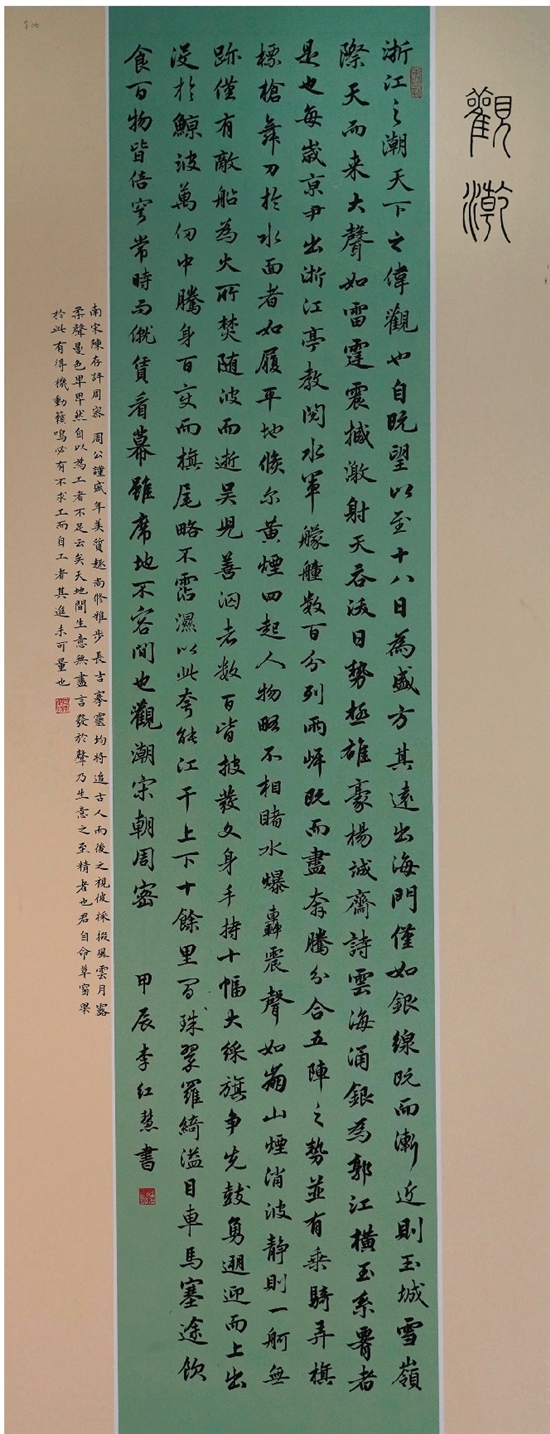 觀潮
浙江之潮天下之偉觀也自既望以至十八日為盛方其遠出海門僅如銀線既而漸近則玉城雪嶺
際天而来大聲如雷霆震撼激射天吞沃日勢極雄豪楊誠齋詩雲海涌銀為郭江橫玉系署者
是也每歲京尹出浙江亭教閱水軍艨艟數百分列兩岸既而盡奔騰分合五陣之勢並有乘騎弄旗
標槍舞刀於水面者如履平地倏尔黃煙四起人物略不相睹水爆轟震聲如崩山煙消波靜則一舸無
跡僅有敵船為火所焚随波而逝吳児善泅者數百皆披發文身手持十幅大綵旗争先鼓勇遡迎而上出
没於鯨波萬仞中騰身百变而旗尾略不霑濕以此夸能江干上下十餘里间珠翠羅綺溢目車馬塞途飲
食百物皆倍穹常時而僦賃看幕雖席地不容間也觀潮宋朝周密 甲辰李红慧書
南宋陳存評周密 周公謹盛年美質趣尚修雅步長吉摹靈均将追古人而後之視彼採掇風雲月露
柔聲曼色卑卑然自以為工者不足云矣天地間生意無盡言發於聲乃生意之至精者也君自命草窗果
於此有得機動籟鳴必有不求工而自工者其進未可量也